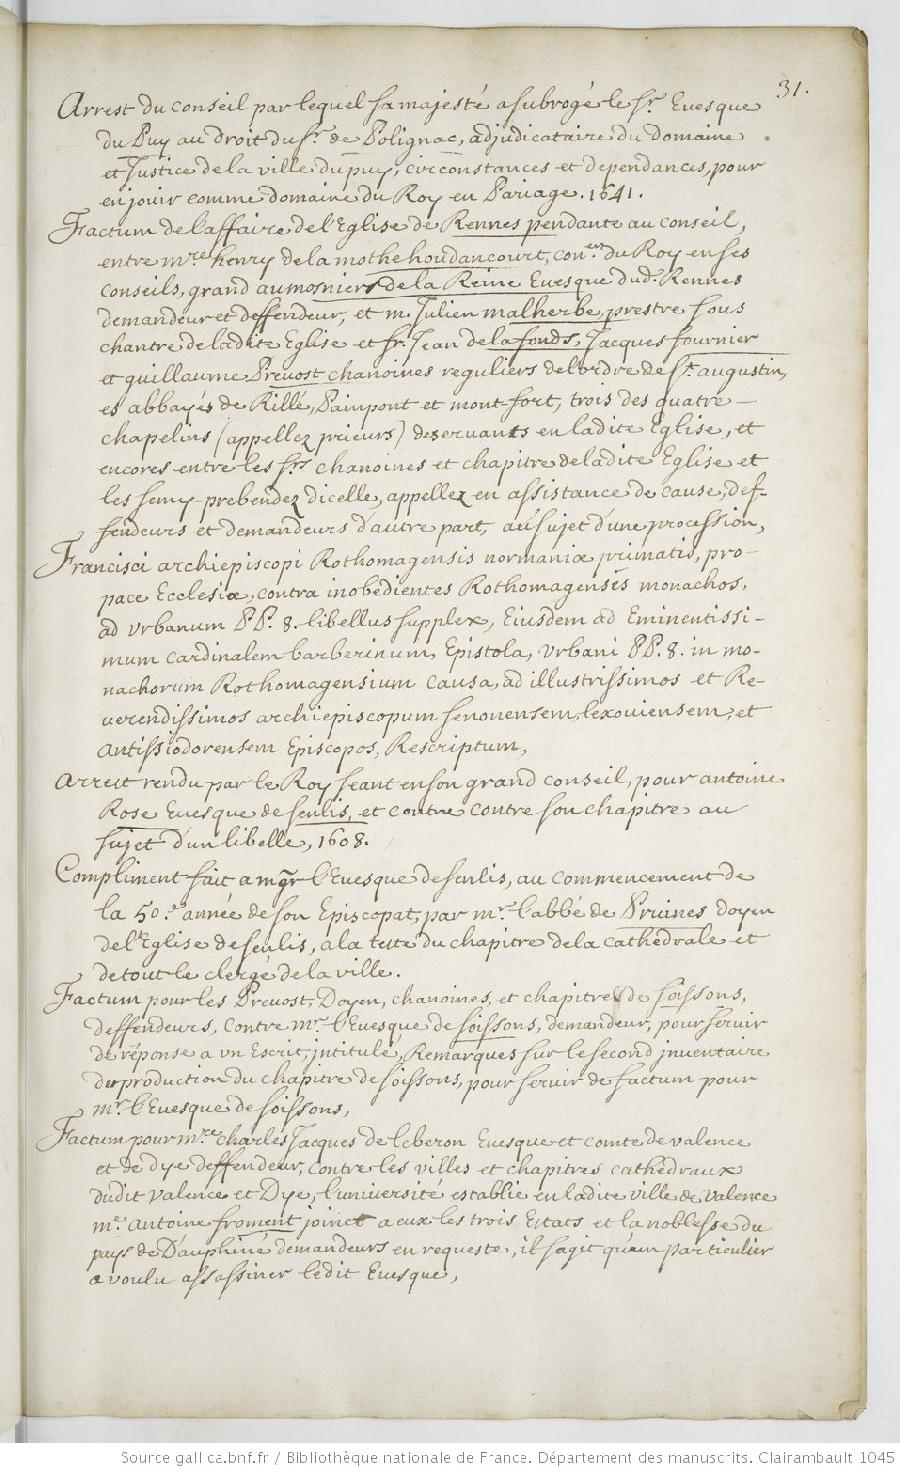 31.
Arrest du conseil par lequel sa majesté a subrogé le Sr. Evesque
du Puy au droit du Sr. de Polignac, adjudicataire du Domaine
et Justice de la ville du puy, circonstances et dependances, pour
en jouir comme domaine du Roy en Pariage. 1641.
Factum de l'affaire de l'Eglise de Rennes pendante au conseil,
entre mre. henry de la mothe houdancourt, conen. du Roy en ses
conseils, grand aumosnier de la Reine Evesque dud. Rennes
demandeur et deffendeur, et m. Julien malherbe, prestre sous
chantre de ladite Eglise et fr. Jean de la fonds, Jacques fournier
et guillaume Prevost chanoines reguliers de l'ordre de St. augustin,
es abbayes de Rillé, Painpont et mont-fort, trois des quatre
chapelins (appellez prieurs) deservants en ladite Eglise, et
encores entre les Srs. chanoines et chapitre de ladite Eglise et
les semy-prebendez d'icelle, appellez en assistance de cause, def-
fendeurs et demandeurs d'autre part, au sujet d'une procession,
Francisci archiepiscopi Rothomagensis normaniæ primatis, pro
pace Ecclesiæ, contra inobedientes Rothomagensis monachos,
ad Urbanum PP. 8. libellus supplex, Eiusdem ad Eminentissi-
mum cardinalem barberinum, Epistola, Urbani PP. 8. in mo-
nachorum Rothomagensium causa, ad illustrissimos et Re-
verendissimos archiepiscopum senonensem, lexoviensem, et
antissiodorensem Episcopos, Rescriptum,
Arrest rendu par le Roy seant en son grand conseil, pour antoine
Rose Evesque de senlis, et contre contre son chapitre au
sujet d'un libelle, 1608.
Compliment fait a mgr l'Evesque de senlis, au commencement de
la 50.e année de son Episcopat, par mr. l'abbé de Pruines doyen
de l'Eglise de senlis, a la teste du chapitre de la cathédrale et
de tout le clergé de la ville.
Factum pour les Prevost, Doyen, chanoines, et chapitre de soissons,
deffendeurs, contre mr. l'Evesque de soissons, demandeur, pour servir
de réponse a un Escrit, intitulé, Remarques sur le second inventaire
de production du chapitre de soissons, pour servir de factum pour
mr. l'Evesque de soissons,
Factum pour mre. charles Jacques de leberon Evesque et comte de valence
et de dye deffendeur, contre les villes et chapitres cathédraux
dudit valence et Dye, l'université establie en ladite ville de valence
me. antoine froment joinct a eux les trois Estats et la noblesse du
pays de Dauphiné demandeurs en requeste, il s'agit qu'un particulier
a voulu assassiner ledit Evesque,
Source gallica.bnf.fr / Bibliothèque nationale de France. Département des manuscrits. Clairambault 1045